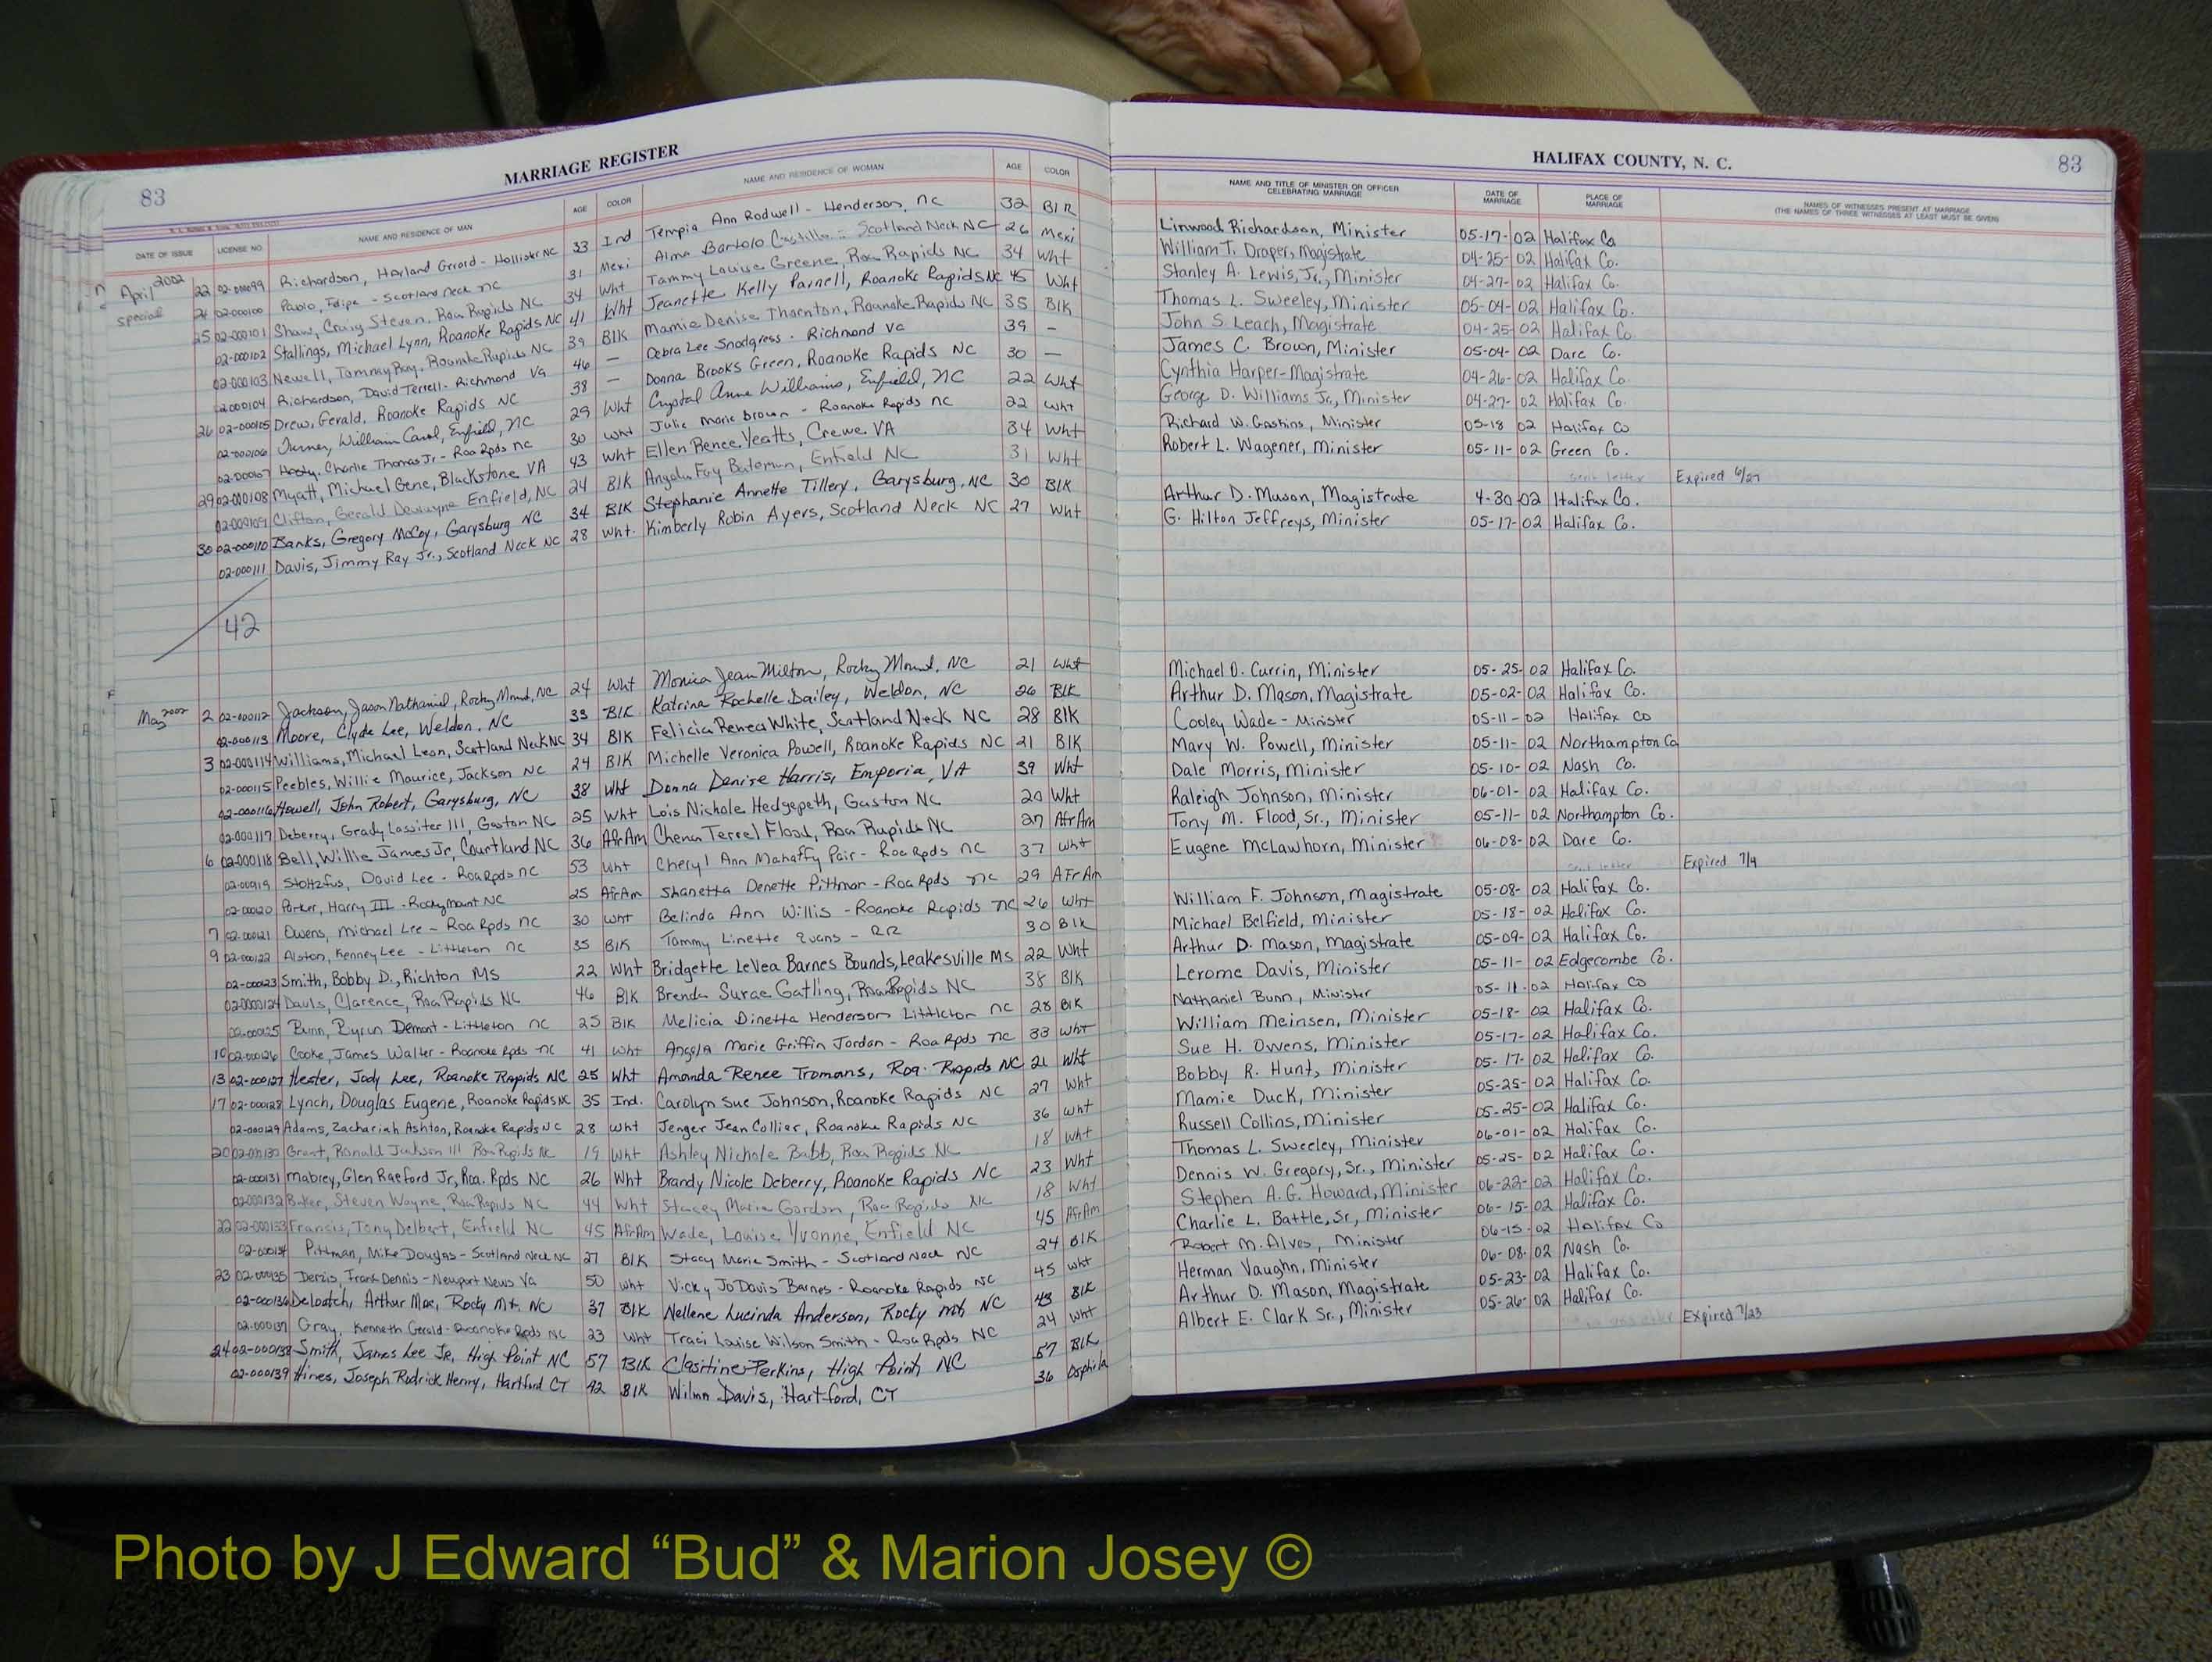 83 MARRIAGE REGISTER
HALIFAX COUNTY, N. C. 83
DATE OF ISSUE LICENSE NO NAME AND RESIDENCE OF MAN AGE COLOR NAME AND RESIDENCE OF WOMAN AGE COLOR NAME AND TITLE OF MINISTER OR OFFICER CELEBRATING MARRIAGE DATE OF MARRIAGE PLACE OF MARRIAGE NAMES OF WITNESSES PRESENT AT MARRIAGE (THE NAMES OF THREE WITNESSES AT LEAST MUST BE GIVEN)
April 2002 22 02-000099 Richardson, Harland Gerard - Hollister NC 33 Ind Tempia Ann Rodwell - Henderson, nc 32 Linwood Richardson, Minister 05-17-02 Halifax Co
special 24 02-000100 Pablo, Felipe - Scotland neck nc 31 Mexi Alma Bartolo Castillo - Scotland Neck NC 26 Mexi William T. Draper, Magistrate 04-25-02 Halifax Co.
25 02-000101 Shaw, Craig Steven, Roa Rapids NC 34 Wht Tammy Louise Greene, Roa Rapids NC 34 Wht Stanley A. Lewis, Jr., Minister 04-27-02 Halifax Co.
02-000102 Stallings, Michael Lynn, Roanoke Rapids NC 41 Wht Jeanette Kelly Parnell, Roanoke Rapids NC 45 Wht Thomas L. Sweeley, Minister 05-04-02 Halifax Co.
02-000103 Newell, Tommy Ray, Roanoke Rapids NC 39 Blk Mamie Denise Thornton, Roanoke Rapids NC 35 Blk John S. Leach, Magistrate 04-25-02 Halifax Co.
02-000104 Richardson, David Terrell - Richmond Va 46 — Debra Lee Snodgress - Richmond Va 39 — James C. Brown, Minister 05-04-02 Dare Co.
26 02-000105 Drew, Gerald, Roanoke Rapids NC 38 — Donna Brooks Green, Roanoke Rapids NC 30 — Cynthia Harper-Magistrate 04-26-02 Halifax Co.
02-000106 Turner, William Carol, Enfield, NC 29 Wht Crystal Anne Williams, Enfield, NC 22 Wht George D. Williams Jr, Minister 04-27-02 Halifax Co.
Charlie Thomas Jr - Roa Rpds nc 30 wht Julie Marie Brown - Roanoke Rapids nc 22 wht Richard W. Gaskins, Minister 05-18 02 Halifax Co
29 02-000108 Myatt, Michael Gene, Blackstone VA 43 Wht Ellen Renee Yeatts, Crewe VA 34 Wht Robert L. Wagener, Minister 05-11-02 Green Co.
02-000109 Clifton, Gerald Dewayne Enfield, NC 24 Blk Angela Fay Bateman, Enfield NC 31 Wht sent letter Expired 6/27
30 02-000110 Banks, Gregory McCoy, Garysburg NC 34 Blk Stephanie Annette Tillery, Garysburg, NC 30 Blk Arthur D. Mason, Magistrate 4-30-02 Halifax Co.
02-000111 Davis, Jimmy Ray Jr., Scotland Neck NC 28 Wht. Kimberly Robin Ayers, Scotland Neck NC 27 Wht G. Hilton Jeffreys, Minister 05-17-02 Halifax Co.
42
May 2002 2 02-000112 Jackson, Jason Nathaniel, Rocky Mount, NC 24 Wht Monica Jean Milton, Rocky Mount, NC 21 Wht Michael D. Currin, Minister 05-25-02 Halifax Co.
02-000113 Moore, Clyde Lee, Weldon, NC 33 Blk Katrina Rochelle Dailey, Weldon, NC 26 Blk Arthur D. Mason, Magistrate 05-02-02 Halifax Co.
3 02-000114 Williams, Michael Leon, Scotland Neck NC 34 Blk Felicia Renea White, Scotland Neck NC 28 Blk Cooley Wade - Minister 05-11-02 Halifax Co
02-000115 Peebles, Willie Maurice, Jackson NC 24 Blk Michelle Veronica Powell, Roanoke Rapids NC 21 Blk Mary W. Powell, Minister 05-11-02 Northampton Co
02-000116 Howell, John Robert, Garysburg, NC 38 Wht Donna Denise Harris, Emporia, VA 39 Wht Dale Morris, Minister 05-10-02 Nash Co.
02-000117 Deberry, Grady Lassiter III, Gaston NC 25 Wht Lois Nichole Hedgepeth, Gaston NC 20 Wht Raleigh Johnson, Minister 06-01-02 Halifax Co.
6 02-000118 Bell, Willie James Jr, Courtland NC 36 AfrAm Chena Terrel Flood, Roa Rapids NC 27 AfrAm Tony M. Flood, Sr., Minister 05-11-02 Northampton Co.
02-000119 Stoltzfus, David Lee - Roa Rpds nc 53 Wht Cheryl Ann Mahaffy Pair - Roa Rpds nc 37 wht Eugene McLawhorn, Minister 06-08-02 Dare Co.
02-000120 Parker, Harry III - Rocky Mount NC 25 AfrAm Shanetta Denette Pittman - Roa Rpds nc 29 AFrAm sent letter Expired 7/9
7 02-000121 Owens, Michael Lee - Roa Rpds nc 30 wht Belinda Ann Willis - Roanoke Rapids nc 26 wht William F. Johnson, Magistrate 05-08-02 Halifax Co.
9 02-000122 Alston, Kenney Lee - Littleton nc 35 Blk Tammy Linette Evans - RR 30 Blk Michael Belfield, Minister 05-18-02 Halifax Co.
02-000123 Smith, Bobby D., Richton Ms 22 Wht Bridgette LeVea Barnes Bounds, Leakesville Ms 22 Wht Arthur D. Mason, Magistrate 05-09-02 Halifax Co.
02-0000124 Davis, Clarence, Roa Rapids NC 46 Blk Brenda Surae Gatling, Roa Rapids NC 38 Blk Lerome Davis, Minister 05-11-02 Edgecombe Co.
02-000125 Bunn, Byrun Demont - Littleton nc 25 Blk Melicia Dinetta Henderson Littleton nc 28 Blk Nathaniel Bunn, Minister 05-11-02 Halifax Co
10 02-000126 Cooke, James Walter - Roanoke Rpds nc 41 Wht Angela Marie Griffin Jordan - Roa Rpds nc 33 wht William Meinsen, Minister 05-18-02 Halifax Co.
13 02-000127 Hester, Jody Lee, Roanoke Rapids NC 25 Wht Amanda Renee Tromans, Roa. Rapids NC 21 Wht Sue H. Owens, Minister 05-17-02 Halifax Co.
17 02-000128 Lynch, Douglas Eugene, Roanoke Rapids NC 35 Ind. Carolyn Sue Johnson, Roanoke Rapids NC 27 Wht Bobby R. Hunt, Minister 05-17-02 Halifax Co.
02-000129 Adams, Zachariah Ashton, Roanoke Rapids NC 28 Wht Jenger Jean Collier, Roanoke Rapids NC 36 wht Mamie Duck, Minister 05-25-02 Halifax Co.
20 02-000130 Grant, Ronald Jackson III Roa Rapids NC 19 Wht Ashley Nichole Babb, Roa Rapids NC 18 Wht Russell Collins, Minister 05-25-02 Halifax Co.
02-000131 Mabrey, Glen Raeford Jr, Roa. Rpds NC 26 Wht Brandy Nicole Deberry, Roanoke Rapids NC 23 Wht Thomas L. Sweeley, Minister 06-01-02 Halifax Co.
02-000132 Baker, Steven Wayne, Roa Rapids NC 44 Wht Stacey Marie Gordon, Roa Rapids NC 18 Wht Dennis W. Gregory, Sr., Minister 05-25-02 Halifax Co.
22 02-000133 Francis, Tony Delbert, Enfield NC 45 AfrAm Wade, Louise Yvonne, Enfield NC 45 AfrAm Stephen A.G. Howard, Minister 06-22-02 Halifax Co.
02-000134 Pittman, Mike Douglas - Scotland Neck NC 27 Blk Stacy Marie Smith - Scotland Neck NC 24 Blk Charlie L. Battle, Sr, Minister 06-15-02 Halifax Co.
23 02-000135 Derzis, Frank Dennis - Newport News Va 50 wht Vicky Jo Davis Barnes - Roanoke Rapids NC 45 wht Robert M. Alves, Minister 06-15-02 Halifax Co
02-000136 Deloatch, Arthur Mae, Rocky Mt. NC 37 Blk Nellene Lucinda Anderson, Rocky mt NC 43 Blk Herman Vaughn, Minister 06-08-02 Nash Co.
02-000137 Gray, Kenneth Gerald - Roanoke Rpds NC 23 wht Traci Louise Wilson Smith - Roa Rpds NC 24 Wht Arthur D. Mason, Magistrate 05-23-02 Halifax Co.
24 02-000138 Smith, James Lee Jr, High Point NC 57 Blk Clasitine Perkins, High Point, NC 57 Blk Albert E. Clark Sr., Minister 05-26-02 Halifax Co.
02-000139 Hines, Joseph Rodrick Henry, Hartford CT 42 Blk Wilma Davis, Hartford, CT 36 Expired 7/23
Photo by J Edward “Bud” & Marion Josey ©